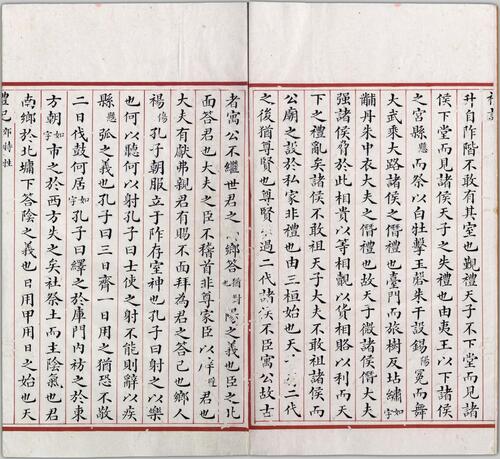 升自阼階不敢有其室也覲禮天子不下堂而見諸
侯下堂而見諸侯天子之失禮也由夷王以下諸侯
之宮縣懸而祭以白牡擊玉磬朱干設錫陽冕而舞
大武乘大路諸侯之僭禮也臺門而旅樹反坫繡如字
黼丹朱中衣大夫之僭禮也故天子微諸侯僭大夫
强諸侯脅於此相貴以等相覿以貨相賂以利而天
下之禮亂矣諸侯不敢祖天子大夫不敢祖諸侯而
公廟之設於私家非禮也由三桓始也天二代
之後猶尊賢也尊賢過二代諸侯不臣寓公故古
者寓公不繼世君之鄉答猶對陽之義也臣之北
面答君也大夫之臣不稽首非尊家臣以君也
大夫有獻弗親君有賜不面拜為君之答己也鄉人
裼傷孔子朝服立于阼存室神也孔子曰射之以樂
也何以聽何以射孔子曰士使之射不能則辭以疾
縣懸弧之義也孔子曰三日齊一日用之猶恐不敬
二日伐鼓何居如字孔子曰繹之於庫門內祊之於東
方朝如字市之於西方失之矣社祭土而主陰氣也君
南鄉於北墉下答陰之義也日用甲用日之始也天
禮記 郊特牲